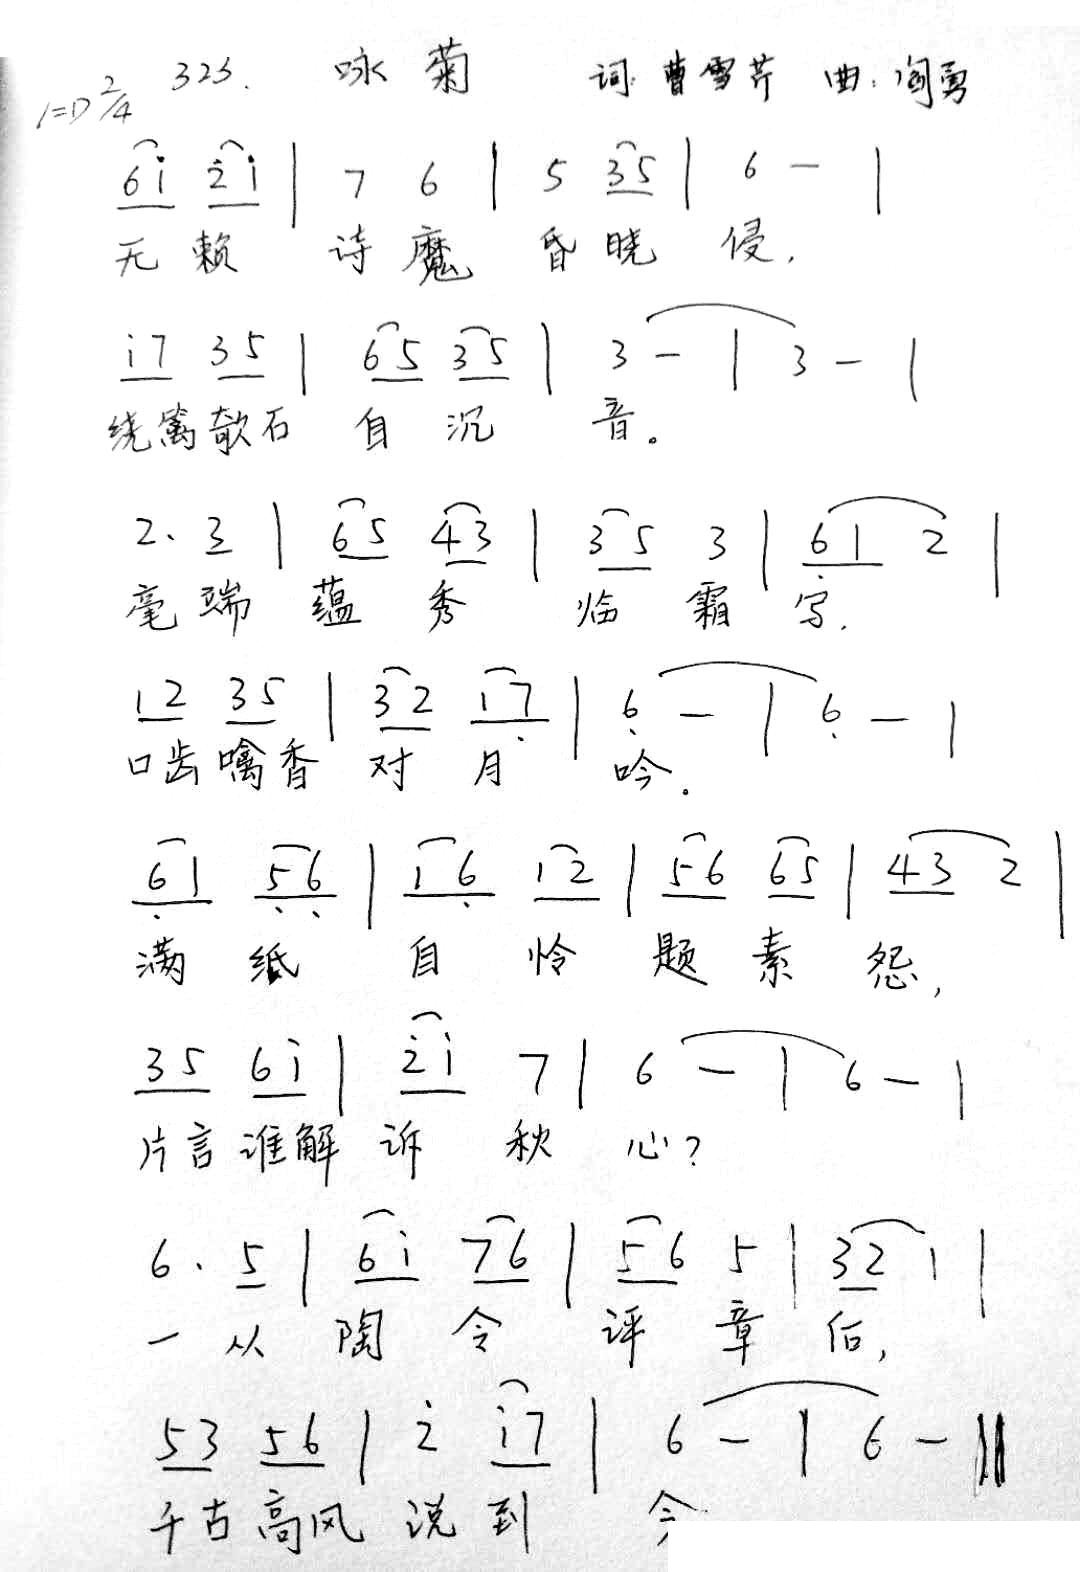 1=D 2/4 325. 咏菊 词:曹雪芹 曲:阎勇
6i 2i | 7 6 | 5 35 | 6 - |
无赖 诗魔 昏晓 侵,
i7 35 | 65 35 | 3 - | 3 - |
绕篱欹石 自沉 音。
2. 3 | 65 43 | 35 3 | 61 2 |
毫端 蕴秀 临霜 写,
12 35 | 32 17 | 6 - | 6 - |
口齿噙香 对月 吟。
61 56 | 16 12 | 56 65 | 43 2 |
满纸 自怜 题素 怨,
35 6i | 2i 7 | 6 - | 6 - |
片言谁解 诉秋 心?
6. 5 | 6i 76 | 56 5 | 32 1 |
一从 陶令 评章 后,
53 56 | 2 i7 | 6 - | 6 - ‖
千古高风 说到 今